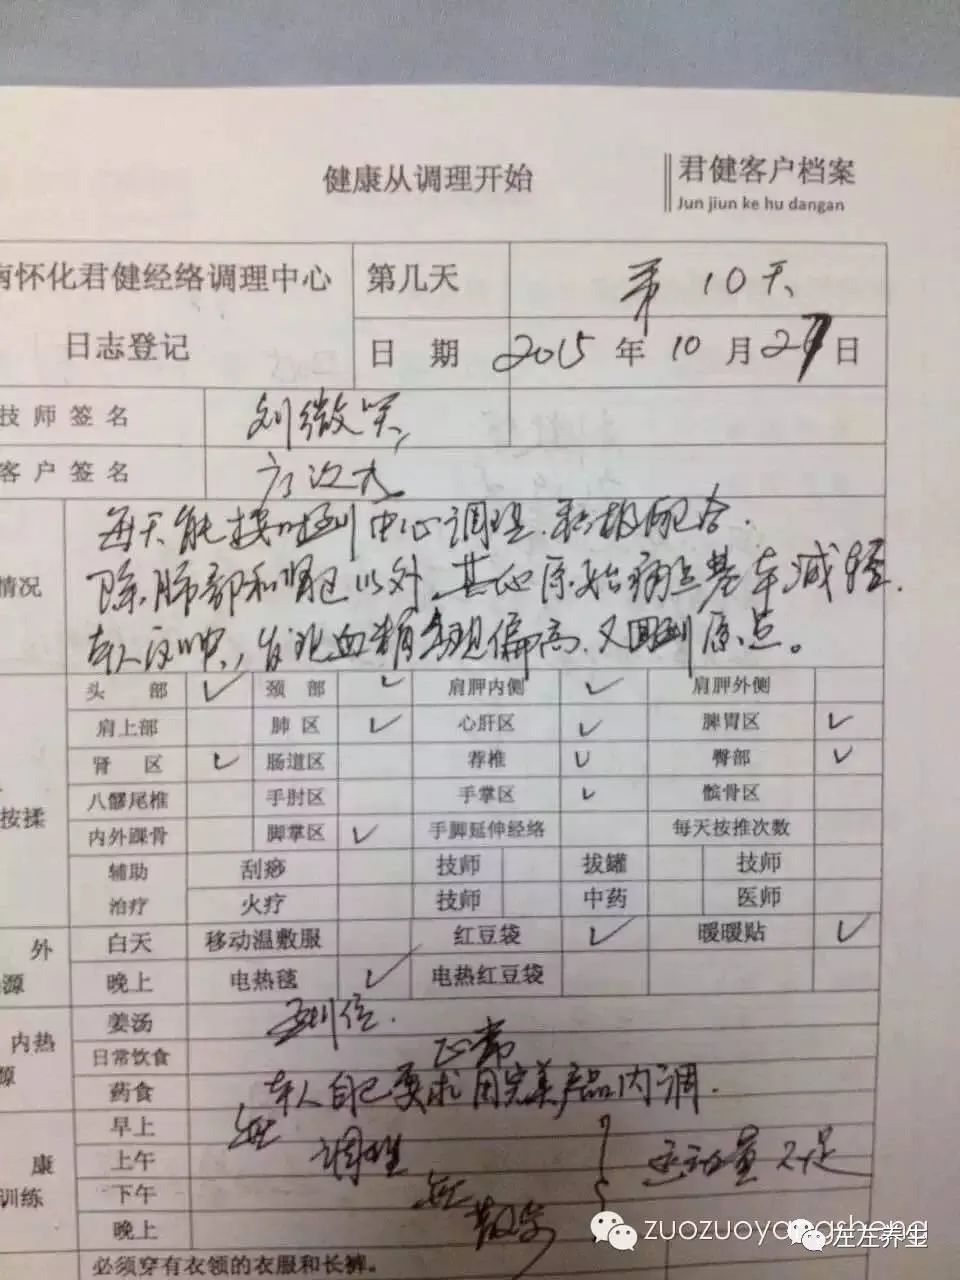 健康从调理开始
君健客户档案
Jun jiun ke hu dangan
南怀化君健经络调理中心
日志登记
第几天 第10天
日 期 2015年10月27日
技师签名 刘微笑
客户签名
情况
每天能按时到中心调理.积极配合.
除肺部和肾区以外,其他原始病点基本减轻.
本人反映,发现血糖有点偏高.又回到原点。
头 部 ✓ 颈 部 ✓ 肩胛内侧 ✓ 肩胛外侧
肩上部 肺 区 ✓ 心肝区 ✓ 脾胃区 ✓
肾 区 ✓ 肠道区 荐椎 ✓ 臀部 ✓
按揉 八髎尾椎 手肘区 手掌区 ✓ 髌骨区
内外踝骨 脚掌区 ✓ 手脚延伸经络 每天按推次数
辅助 刮痧 技师 拔罐 技师
治疗 火疗 技师 中药 医师
外 白天 移动温敷服 红豆袋 ✓ 暖暖贴 ✓
源 晚上 电热毯 ✓ 电热红豆袋
内热 姜汤 到位.
源 日常饮食 正常
药食 本人自己要求用完美产品内调.
早上 无
康 上午 调理 运动量不足
训练 下午 无
晚上 散步
必须穿有衣领的衣服和长裤。
zuozuoyangsheng
左左养生